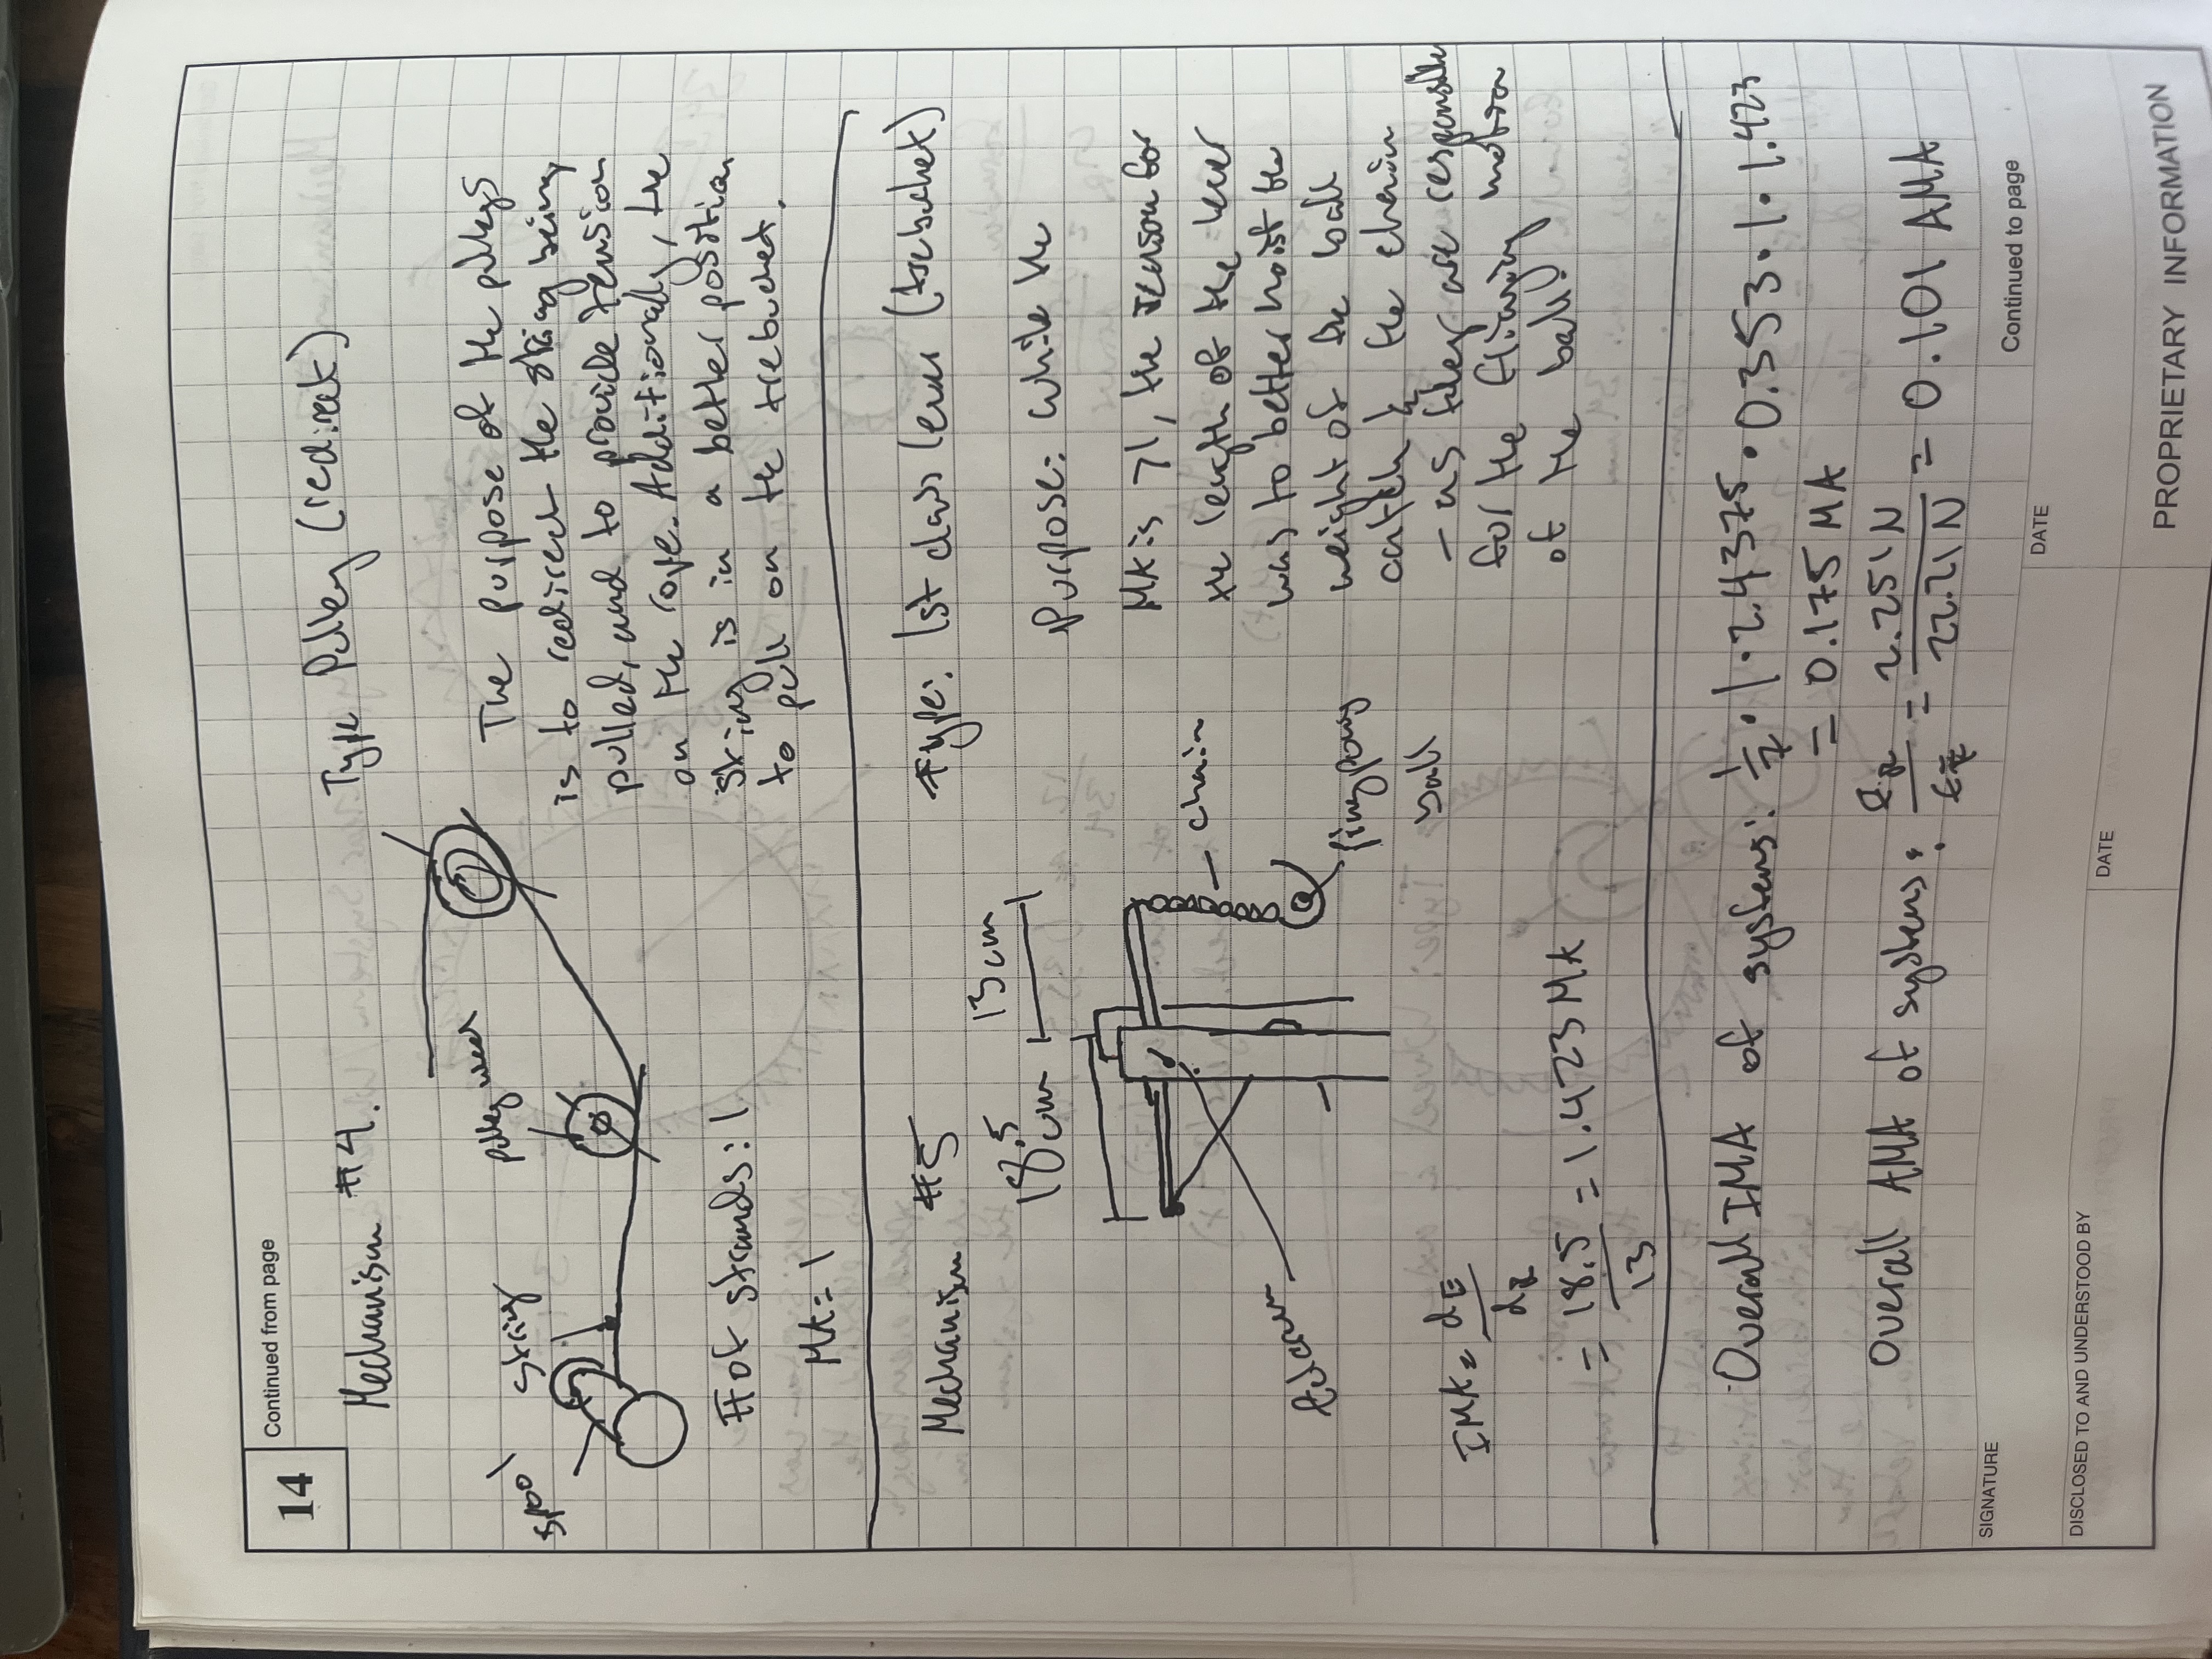 14
Continued from page
Mechanism #4.
Type Pulley (redirect)
spool
string
pulley wheel
The purpose of the pulleys
is to redirect the string being
pulled, and to provide tension
on the rope. Additionally, the
string is in a better position
to pull on the trebuchet.
# of strands: 1
MA= 1
Mechanism #5
Type: 1st class lever (trebuchet)
18.5 cm
13cm
Purpose: While the
MA is >1, the reason for
the length of the lever
was to better hoist the
weight of the ball
catch & the chain
- as they are responsible
for the flinging motion
of the ball.
chain
fulcrum
ping pong
ball
IMA = dE/dR
= 18.5/13 = 1.423 MA
Overall IMA of systems: 1/7 · 1 · 2.4375 · 0.353 · 1 · 1.423
= 0.175 MA
Overall AMA of systems: FR/FE = 2.251N/22.21N = 0.101 AMA
SIGNATURE
Continued to page
DATE
DISCLOSED TO AND UNDERSTOOD BY
DATE
PROPRIETARY INFORMATION